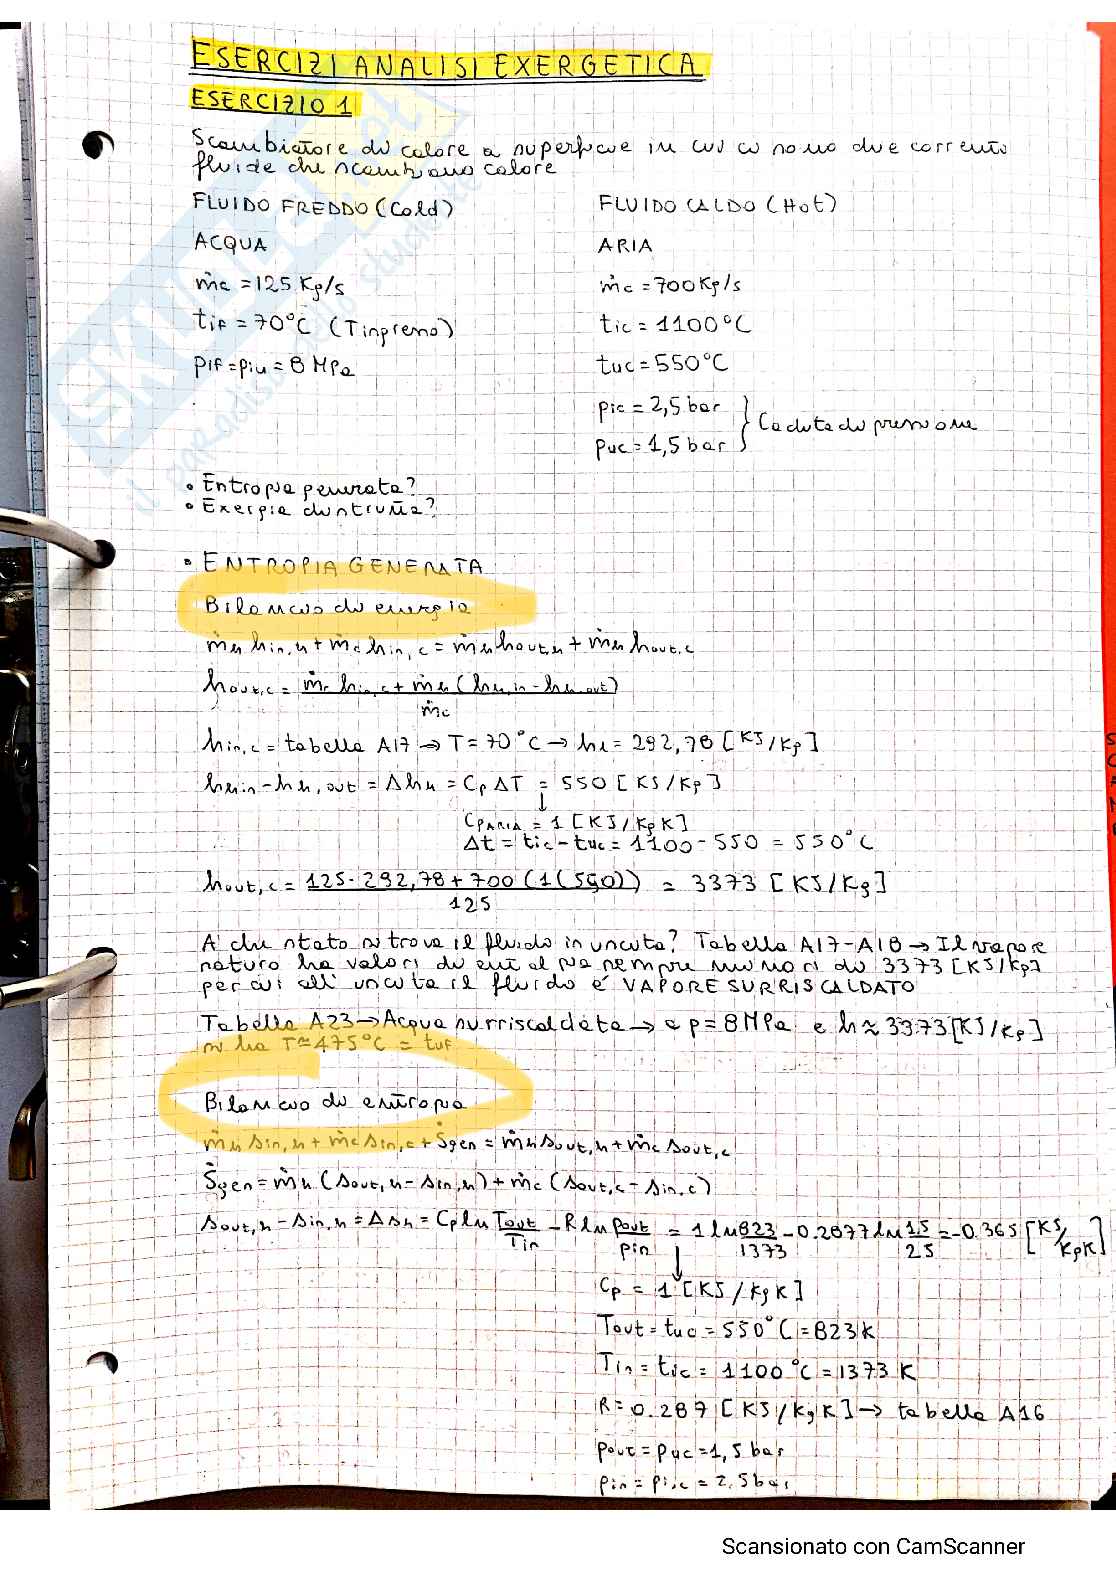 ESERCIZI ANALISI EXERGETICA
ESERCIZIO 1
Scambiatore di calore a superficie in cui ci sono due correnti
fluide che scambiano calore
FLUIDO FREDDO (Cold)
ACQUA
ṁc = 125 Kg/s
tif = 70°C (T ingresso)
pif = piu = 8 MPa
FLUIDO CALDO (Hot)
ARIA
ṁc = 700 Kg/s
tic = 1100°C
tuc = 550°C
pic = 2,5 bar
puc = 1,5 bar
Caduta di pressione
• Entropia generata?
• Exergia distrutta?
• ENTROPIA GENERATA
Bilancio di energia
ṁH hin,H + ṁc hin,c = ṁH hout,H + ṁH hout,c
hout,c = ṁc hin,c + ṁH (hH,in - hH,out)
ṁc
hin,c = tabella A17 → T = 70°C → hL = 292,78 [KJ/Kg]
hH,in - hH,out = ΔhH = Cp ΔT = 550 [KJ/Kg]
↓
CpARIA = 1 [KJ/KgK]
Δt = tic - tuc = 1100 - 550 = 550°C
hout,c = 125 · 292,78 + 700 (1(550)) = 3373 [KJ/Kg]
125
A che stato si trova il fluido in uscita? Tabella A17-A18 → Il vapore
saturo ha valori di entalpia sempre minori di 3373 [KJ/Kg]
per cui all'uscita il fluido è VAPORE SURRISCALDATO
Tabella A23 → Acqua surriscaldata → a p = 8 MPa e h ≈ 3373 [KJ/Kg]
si ha T ≈ 475°C = tuf
Bilancio di entropia
ṁH sin,H + ṁc sin,c + Ṡgen = ṁH sout,H + ṁc sout,c
Ṡgen = ṁH (sout,H - sin,H) + ṁc (sout,c - sin,c)
sout,H - sin,H = ΔsH = Cp ln Tout/Tin - R ln pout/pin = 1 ln 823/1373 - 0.2877 ln 1.5/2.5 = -0.365 [KJ/KgK]
↓
Cp = 1 [KJ/KgK]
Tout = tuc = 550°C = 823 K
Tin = tic = 1100°C = 1373 K
R = 0.287 [KJ/KgK] → tabella A16
pout = puc = 1,5 bar
pin = pi,c = 2,5 bar
Scansionato con CamScanner